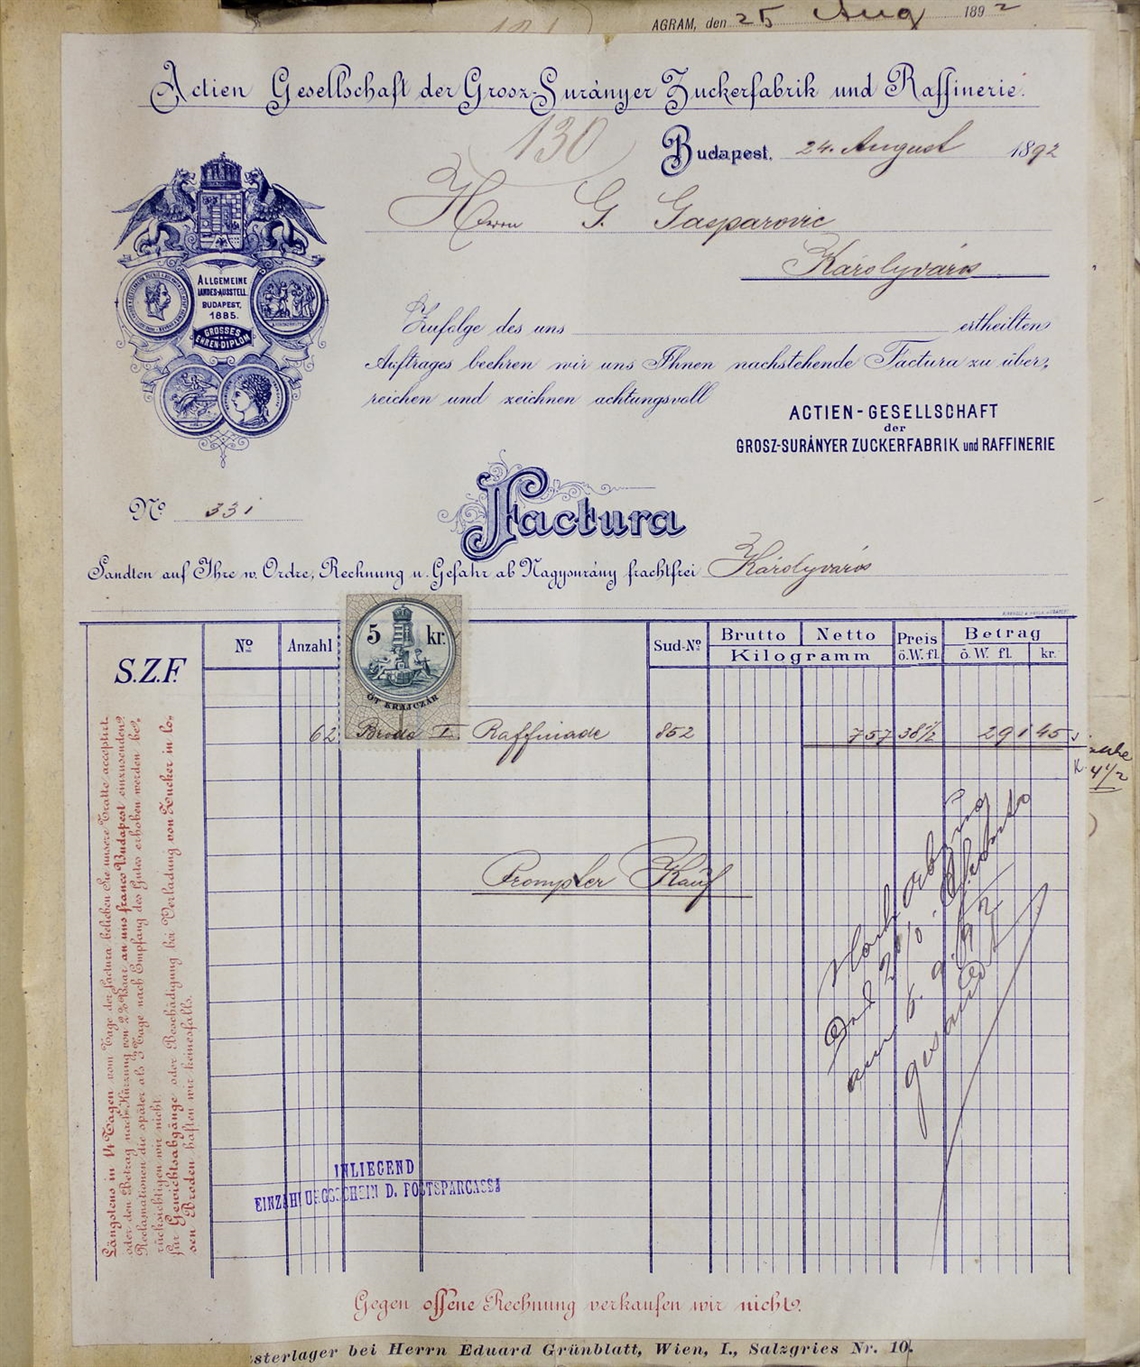 AGRAM, den 25 Aug 1892
Actien Gesellschaft der Grosz-Surányer Zuckerfabrik und Raffinerie.
130
Budapest, 24. August 1892
Herrn G. Gasparovic
Károlyváros
ALLGEMEINE
LANDES-AUSSTELL.
BUDAPEST,
1885.
GROSSES
EHREN-DIPLOM
Zufolge des uns ertheilten
Auftrages beehren wir uns Ihnen nachstehende Factura zu über-
reichen und zeichnen achtungsvoll
ACTIEN-GESELLSCHAFT
der
GROSZ-SURÁNYER ZUCKERFABRIK und RAFFINERIE
No 331
Factura
Sandten auf Ihre w. Ordre, Rechnung u. Gefahr ab Nagysurány frachtfrei Károlyváros
S.Z.F.
No Anzahl Sud-No Brutto Netto Preis Betrag
Kilogramm ö.W. fl. ö. W. fl. kr.
5 kr.
ÖT KRAJCZÁR
62 Brode I. Raffinade 852 757 38 1/2 291 45
4 1/2
Prompter Kauf
Nach Abzug
2% Skonto
am 5. 9. 92
gesandt
Längstens in 14 Tagen vom Tage der Factura belieben Sie unsere Tratte acceptirt
oder den Betrag nach Kürzung von 2% Baar an uns franco Budapest einzusenden.
Reclamationen die später als 3 Tage nach Empfang des Gutes erhoben werden be-
rücksichtigen wir nicht.
für Gewichtsabgänge oder Beschädigung bei Verladung von Zucker in lo-
sen Broden haften wir keinesfalls.
INLIEGEND
EINZAHLUNGSSCHEIN D. POSTSPARCASSA
Gegen offene Rechnung verkaufen wir nicht.
sterlager bei Herrn Eduard Grünblatt, Wien, I., Salzgries Nr. 10.